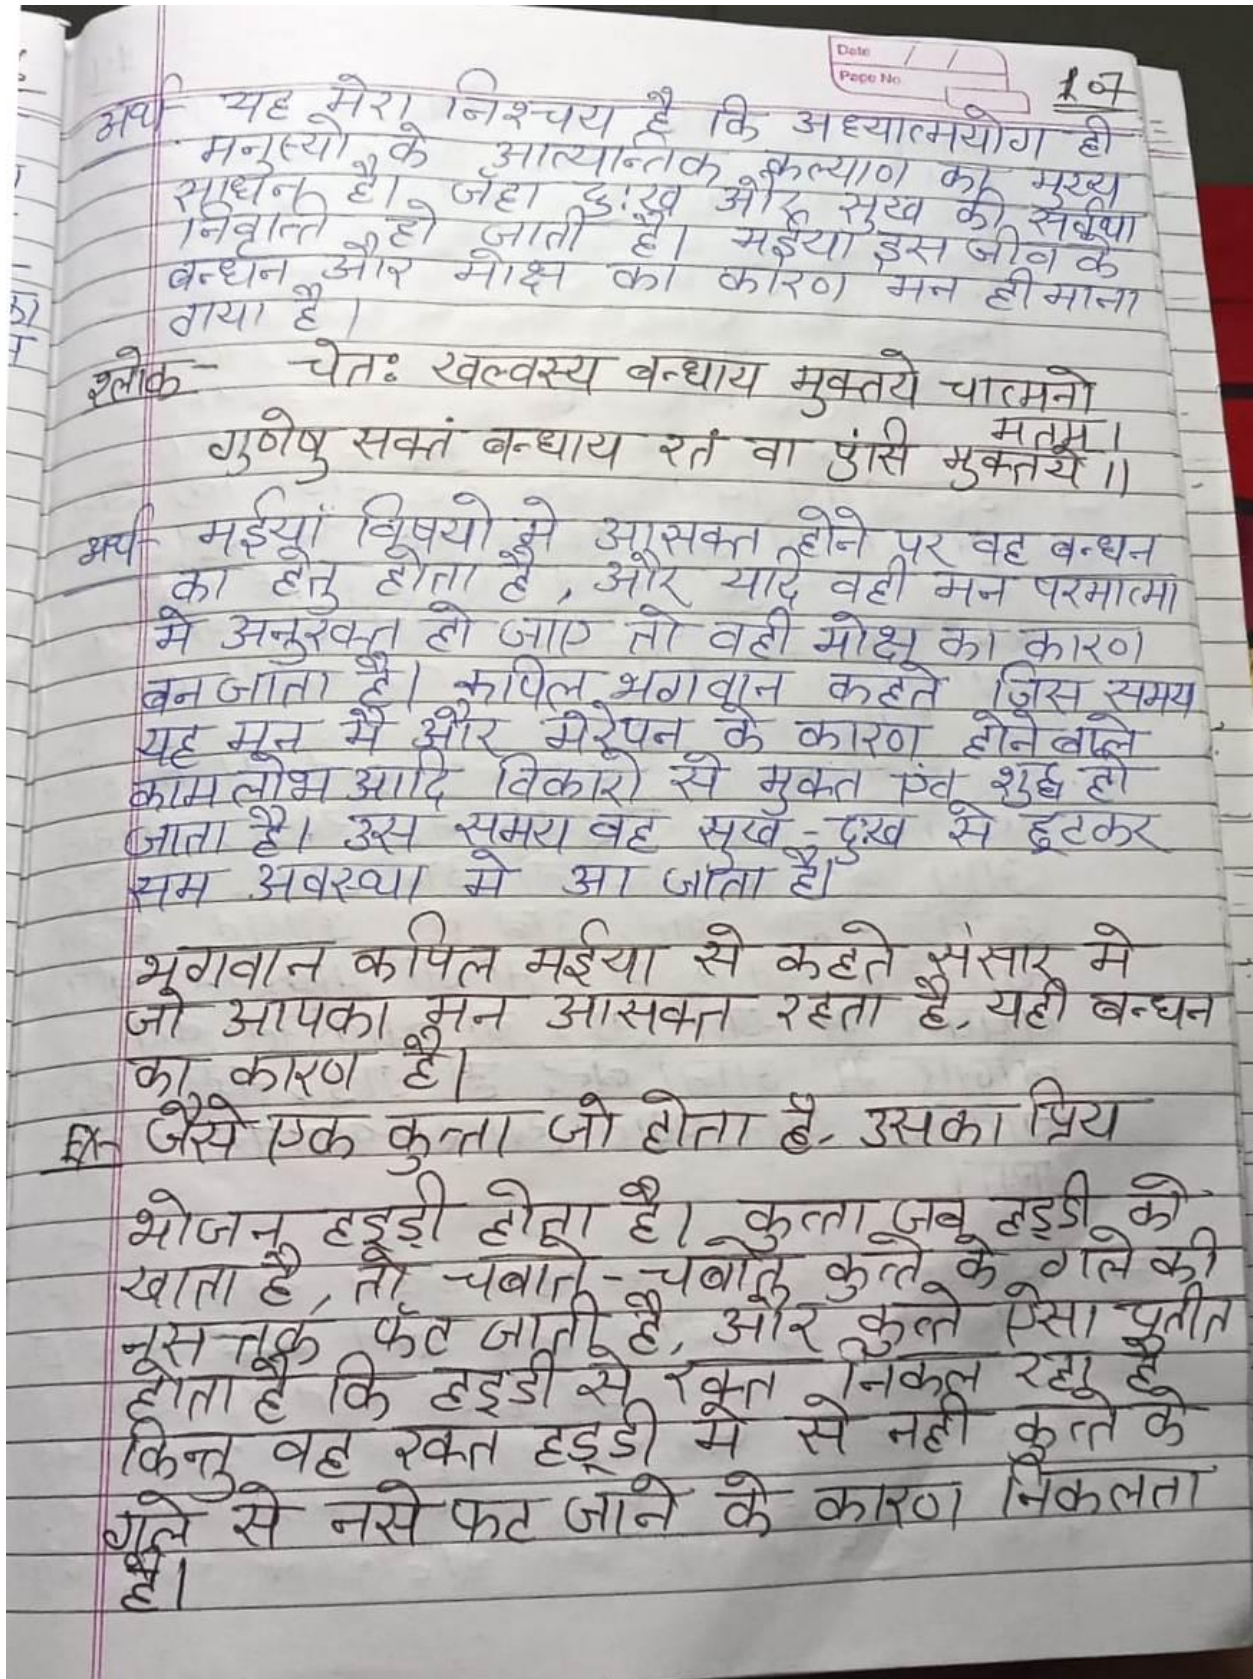 Date / /
Page No
107
अर्थ- यह मेरा निश्चय है कि अध्यात्मयोग ही
मनुष्यो के आत्यान्तिक कल्याण का मुख्य
साधन है। जँहा दुःख और सुख की सर्वथा
निवृत्ति हो जाती है। मईया इस जीव के
बन्धन और मोक्ष का कारण मन ही माना
गया है।
श्लोक- चेतः खल्वस्य बन्धाय मुक्तये चात्मनो
मतम्।
गुणेषु सक्तं बन्धाय रतं वा पुंसि मुक्तये॥
अर्थ- मईयां विषयो मे आसक्त होने पर वह बन्धन
का हेतु होता है, और यदि वही मन परमात्मा
मे अनुरक्त हो जाए तो वही मोक्ष का कारण
बन जाता है। कपिल भगवान कहते जिस समय
यह मन मै और मेरेपन के कारण होने वाले
काम लोभ आदि विकारो से मुक्त एंव शुद्ध हो
जाता है। उस समय वह सुख-दुःख से छूटकर
सम अवस्था मे आ जाता है।
भगवान कपिल मईया से कहते संसार मे
जो आपका मन आसक्त रहता है, यही बन्धन
का कारण है।
Ex- जैसे एक कुत्ता जो होता है, उसका प्रिय
भोजन हड्ड़ी होता है। कुत्ता जब हड्डी को
खाता है, तो चबाते-चबाते कुत्ते के गले की
नस तक फट जाती है, और कुत्ते ऐसा प्रतीत
होता है कि हड्डी से रक्त निकल रहा है
किन्तु वह रक्त हड्डी मे से नही कुत्ते के
गले से नसे फट जाने के कारण निकलता
है।